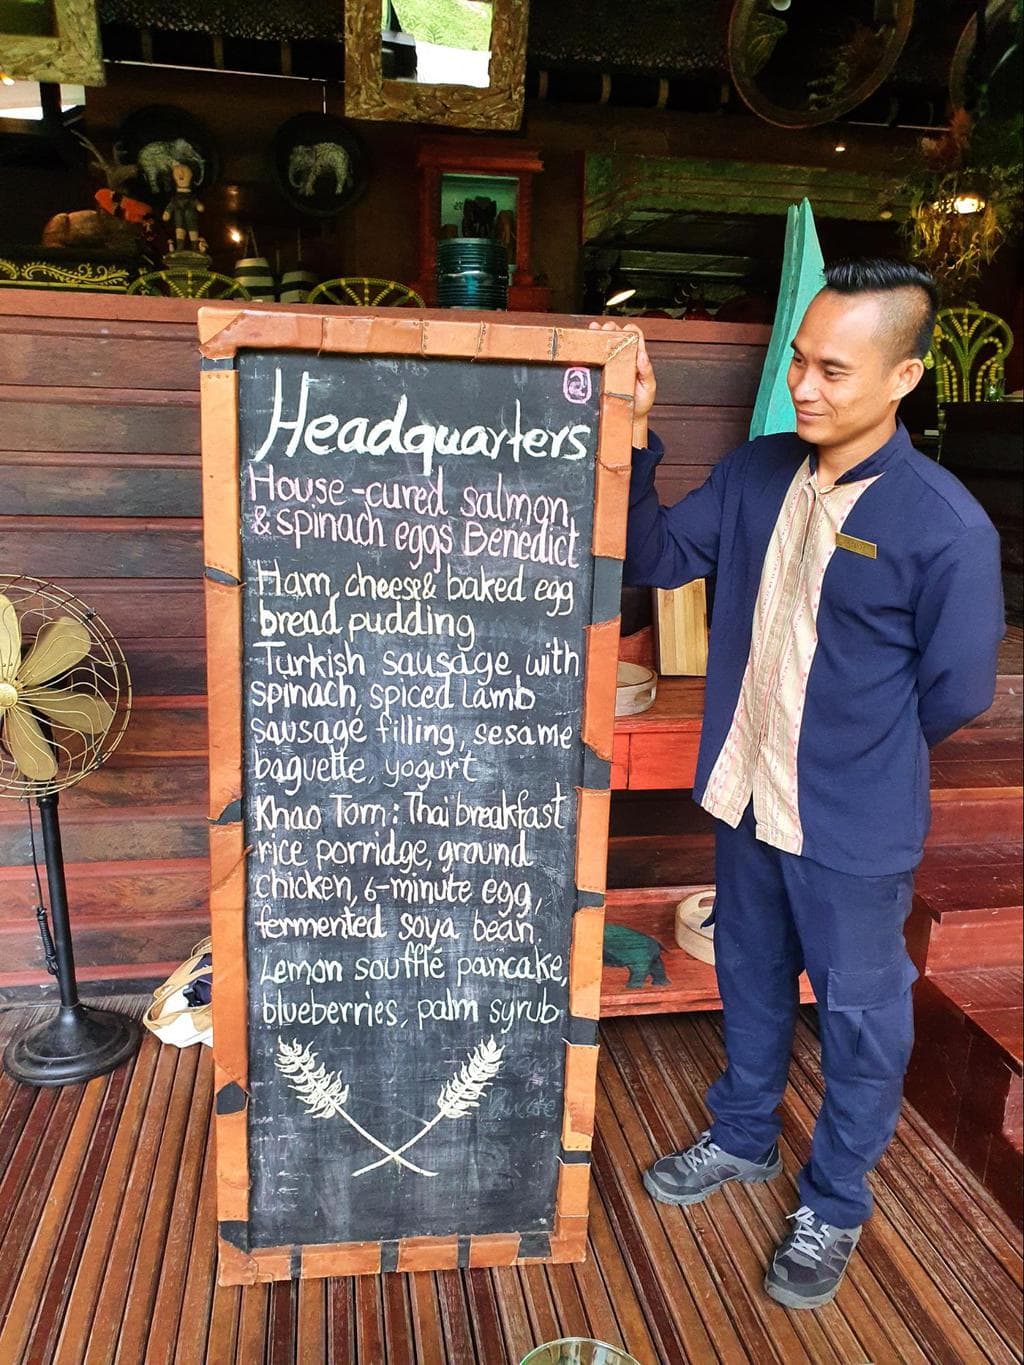 Headquarters
House-cured salmon
& spinach eggs Benedict
Ham, cheese & baked egg
bread pudding
Turkish sausage with
spinach, spiced lamb
sausage filling, sesame
baguette, yogurt
Khao Tom: Thai breakfast
rice porridge, ground
chicken, 6-minute egg,
fermented soya bean.
Lemon soufflé pancake,
blueberries, palm syrub